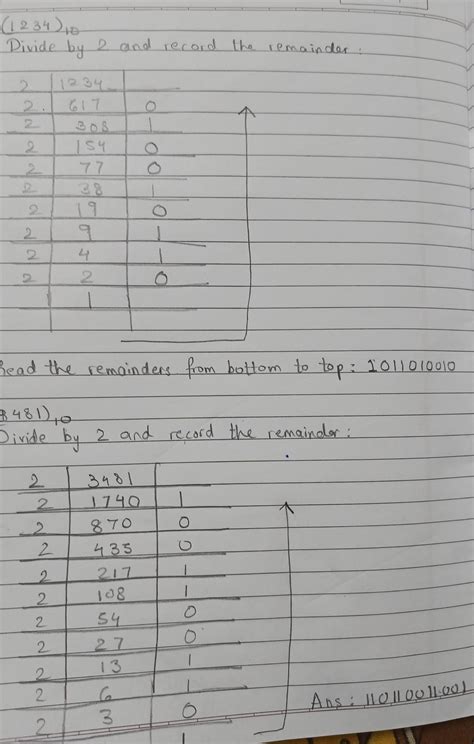 (1234)10
Divide by 2 and record the remainder:
2 1234
2. 617 0
2 308 1
2 154 0
2 77 0
2 38 1
2 19 0
2 9 1
2 4 1
2 2 0
1
Read the remainders from bottom to top: 1011010010
3481)10
Divide by 2 and record the remainder:
2 3481
2 1740 1
2 870 0
2 435 0
2 217 1
2 108 1
2 54 0
2 27 0
2 13 1
2 6 1
2 3 0
Ans: 110110011001
1